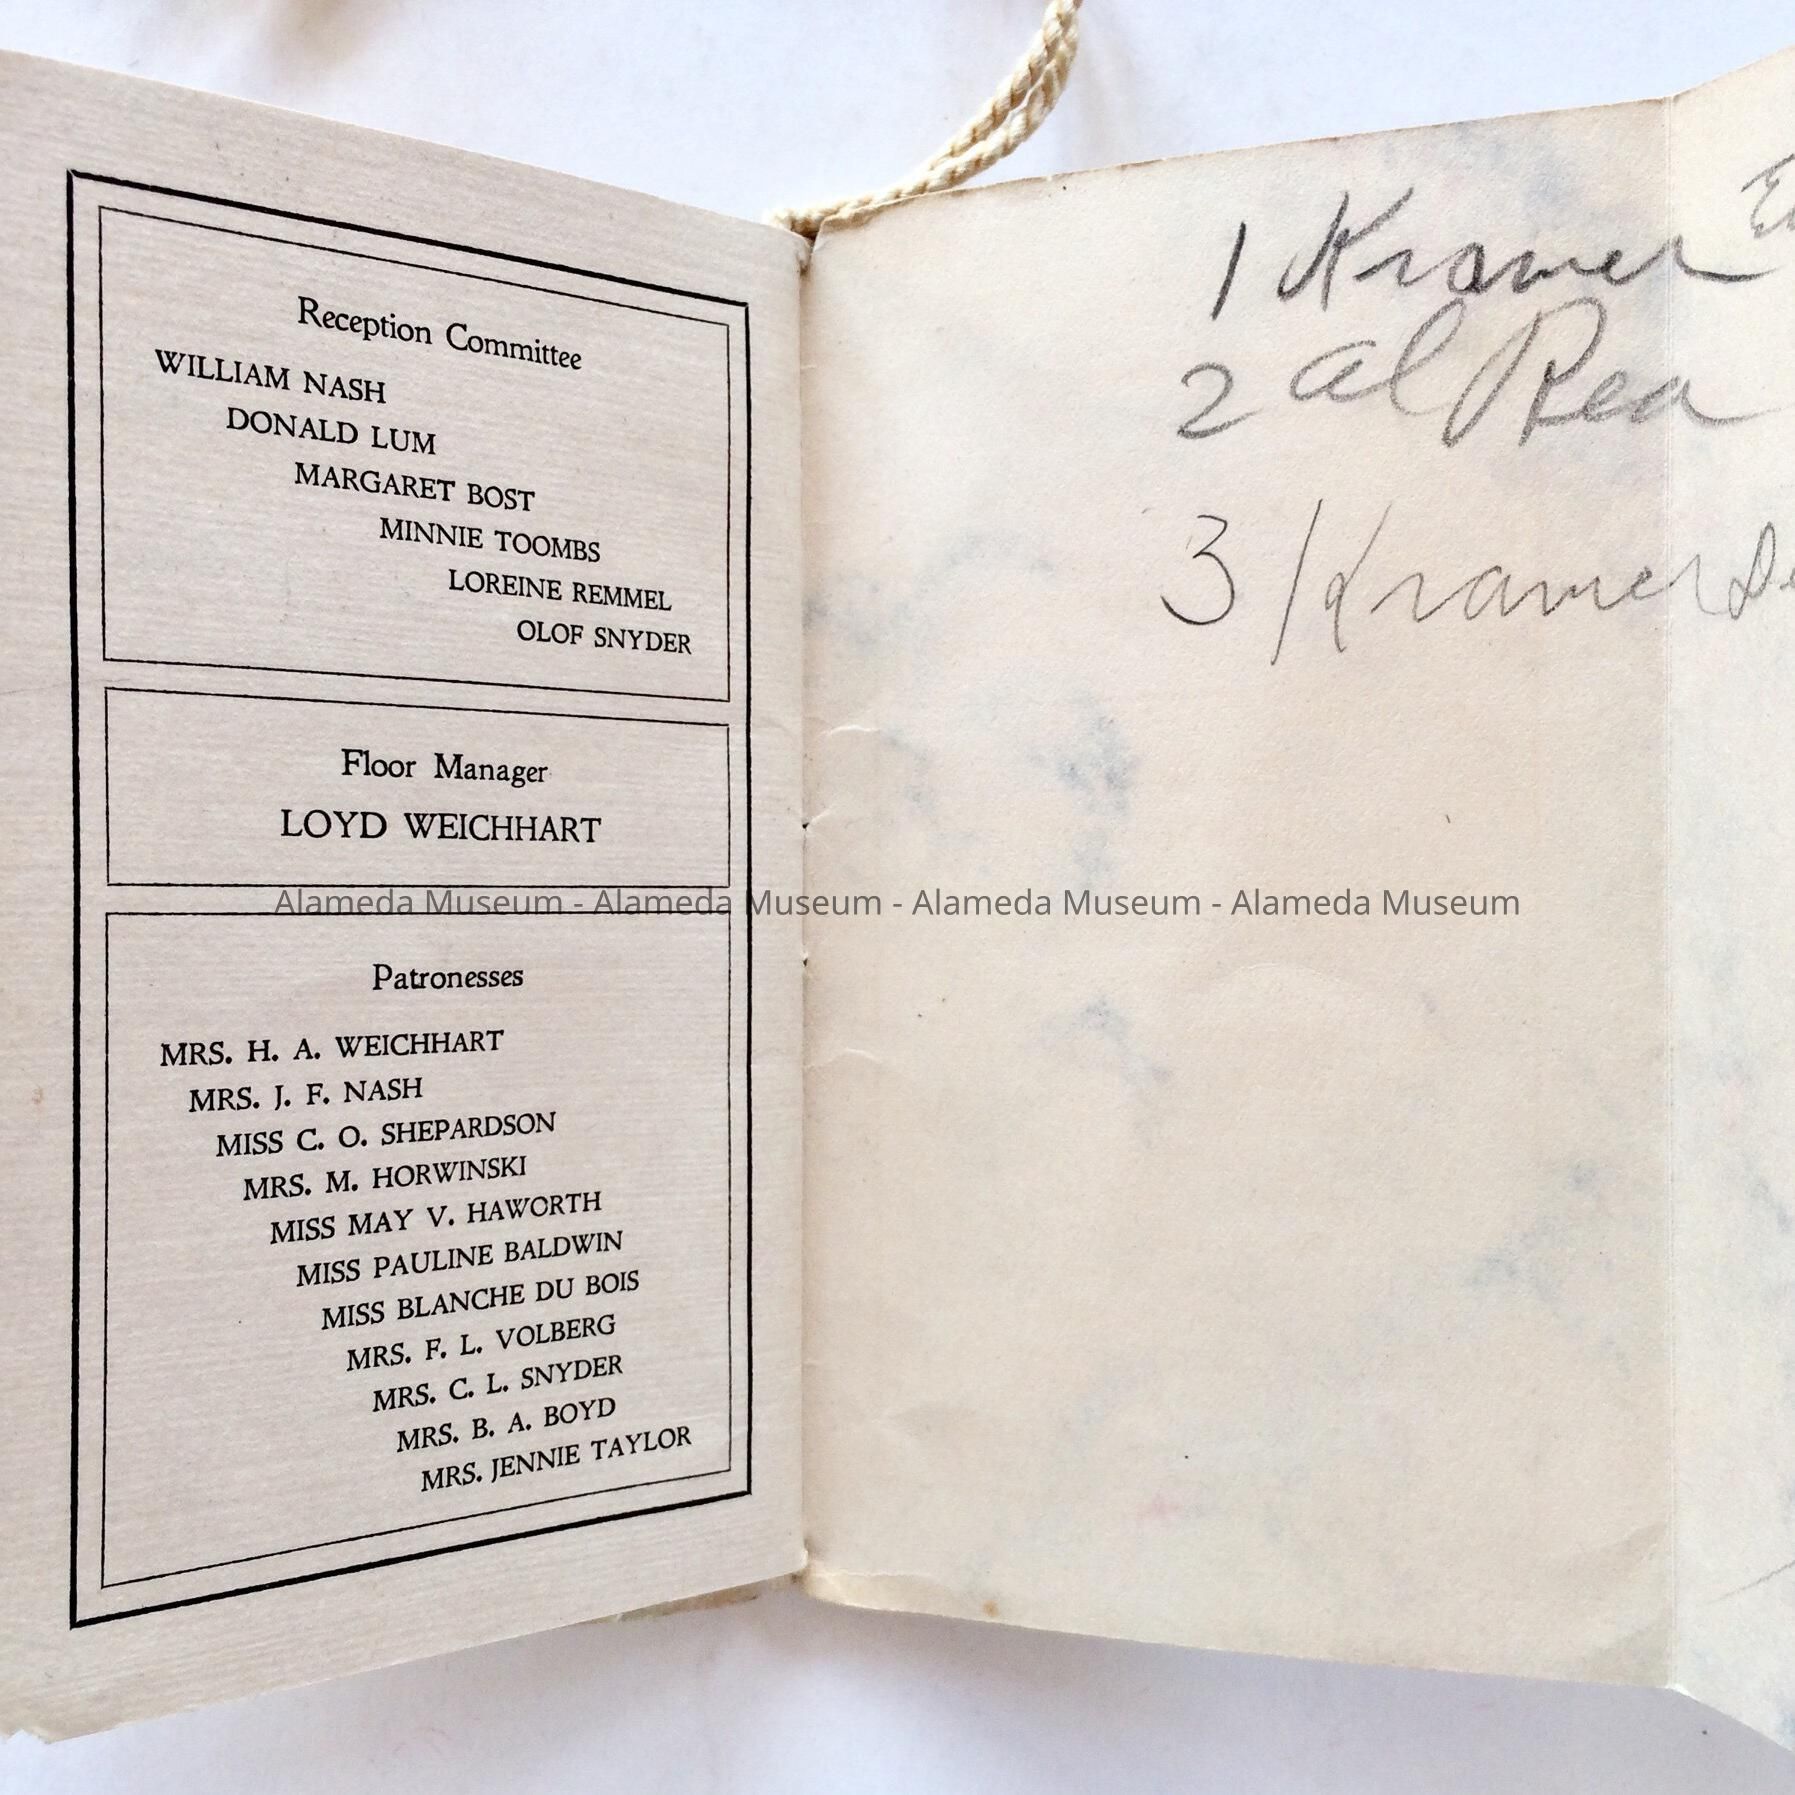 Reception Committee
WILLIAM NASH
DONALD LUM
MARGARET BOST
MINNIE TOOMBS
LOREINE REMMEL
OLOF SNYDER
Floor Manager
LOYD WEICHHART
Patronesses
MRS. H. A. WEICHHART
MRS. J. F. NASH
MISS C. O. SHEPARDSON
MRS. M. HORWINSKI
MISS MAY V. HAWORTH
MISS PAULINE BALDWIN
MISS BLANCHE DU BOIS
MRS. F. L. VOLBERG
MRS. C. L. SNYDER
MRS. B. A. BOYD
MRS. JENNIE TAYLOR
1 Kramer
2 Al Rea
3 Kramer
Alameda Museum - Alameda Museum - Alameda Museum - Alameda Museum